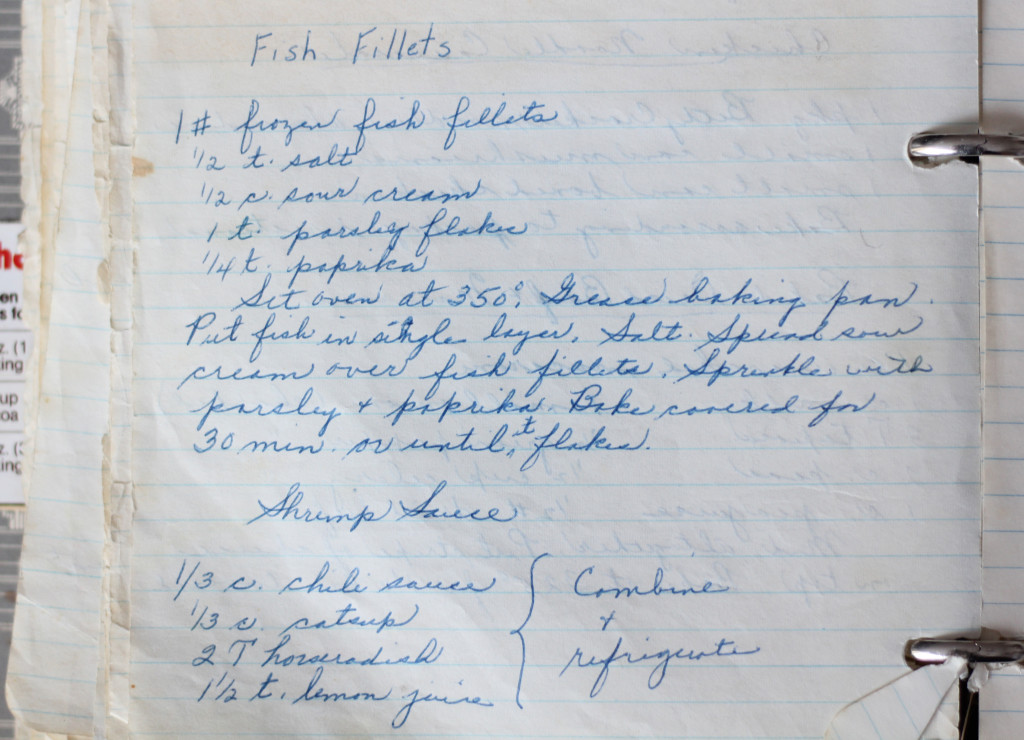 Fish Fillets
1 # frozen fish fillets
1/2 t. salt
1/2 c. sour cream
1 t. parsley flakes
1/4 t. paprika
Set oven at 350°. Grease baking pan.
Put fish in single layer. Salt. Spread sour
cream over fish fillets. Sprinkle with
parsley + paprika. Bake covered for
30 min. or until it flakes.
Shrimp Sauce
1/3 c. chili sauce
1/3 c. catsup
2 T horseradish
1 1/2 t. lemon juice
Combine
+
refrigerate